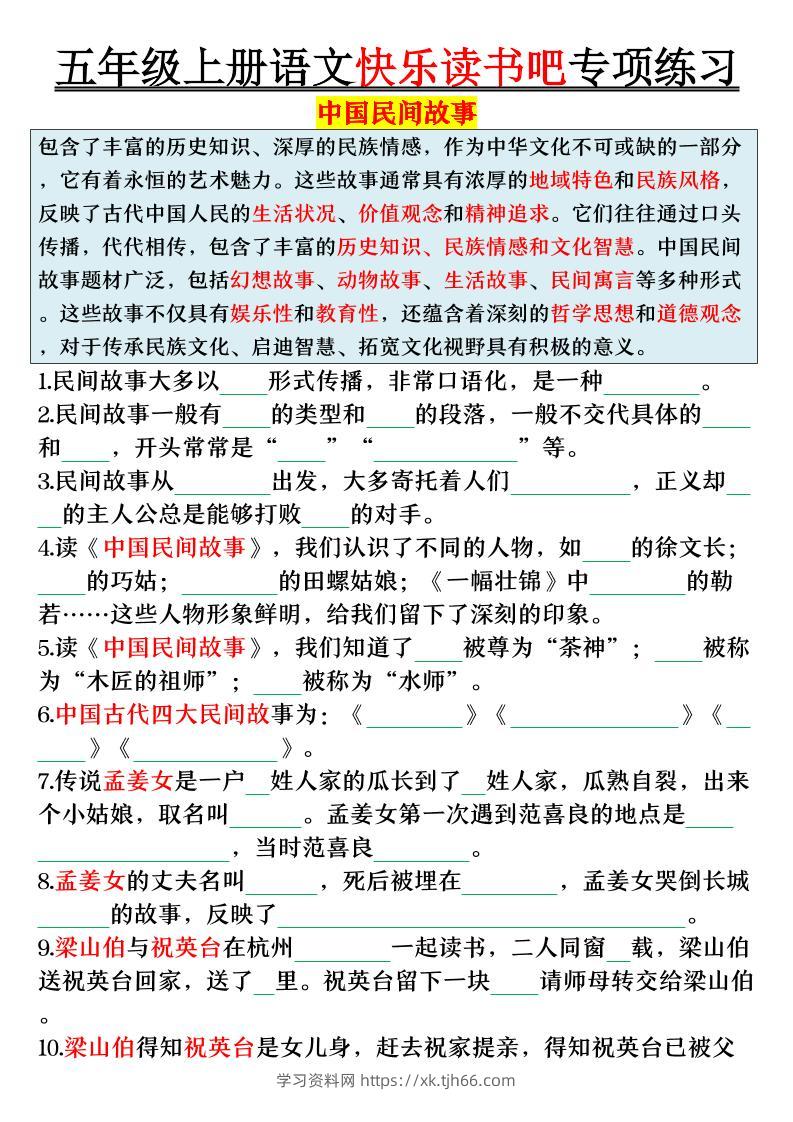 五年级上册语文快乐读书吧专项练习
中国民间故事
包含了丰富的历史知识、深厚的民族情感，作为中华文化不可或缺的一部分
，它有着永恒的艺术魅力。这些故事通常具有浓厚的地域特色和民族风格，
反映了古代中国人民的生活状况、价值观念和精神追求。它们往往通过口头
传播，代代相传，包含了丰富的历史知识、民族情感和文化智慧。中国民间
故事题材广泛，包括幻想故事、动物故事、生活故事、民间寓言等多种形式
。这些故事不仅具有娱乐性和教育性，还蕴含着深刻的哲学思想和道德观念
，对于传承民族文化、启迪智慧、拓宽文化视野具有积极的意义。
1.民间故事大多以____形式传播，非常口语化，是一种________。
2.民间故事一般有____的类型和____的段落，一般不交代具体的____
和____，开头常常是“____”“____________”等。
3.民间故事从________出发，大多寄托着人们__________，正义却__
__的主人公总是能够打败____的对手。
4.读《中国民间故事》，我们认识了不同的人物，如____的徐文长；
____的巧姑；________的田螺姑娘；《一幅壮锦》中________的勒
若……这些人物形象鲜明，给我们留下了深刻的印象。
5.读《中国民间故事》，我们知道了____被尊为“茶神”；____被称
为“木匠的祖师”；____被称为“水师”。
6.中国古代四大民间故事为：《________》《______________》《__
____》《____________》。
7.传说孟姜女是一户__姓人家的瓜长到了__姓人家，瓜熟自裂，出来
个小姑娘，取名叫______。孟姜女第一次遇到范喜良的地点是____
________________，当时范喜良________。
8.孟姜女的丈夫名叫______，死后被埋在________，孟姜女哭倒长城
______的故事，反映了__________________________________。
9.梁山伯与祝英台在杭州________一起读书，二人同窗__载，梁山伯
送祝英台回家，送了__里。祝英台留下一块____请师母转交给梁山伯
。
10.梁山伯得知祝英台是女儿身，赶去祝家提亲，得知祝英台已被父
学习资料网 https://xk.tjh66.com